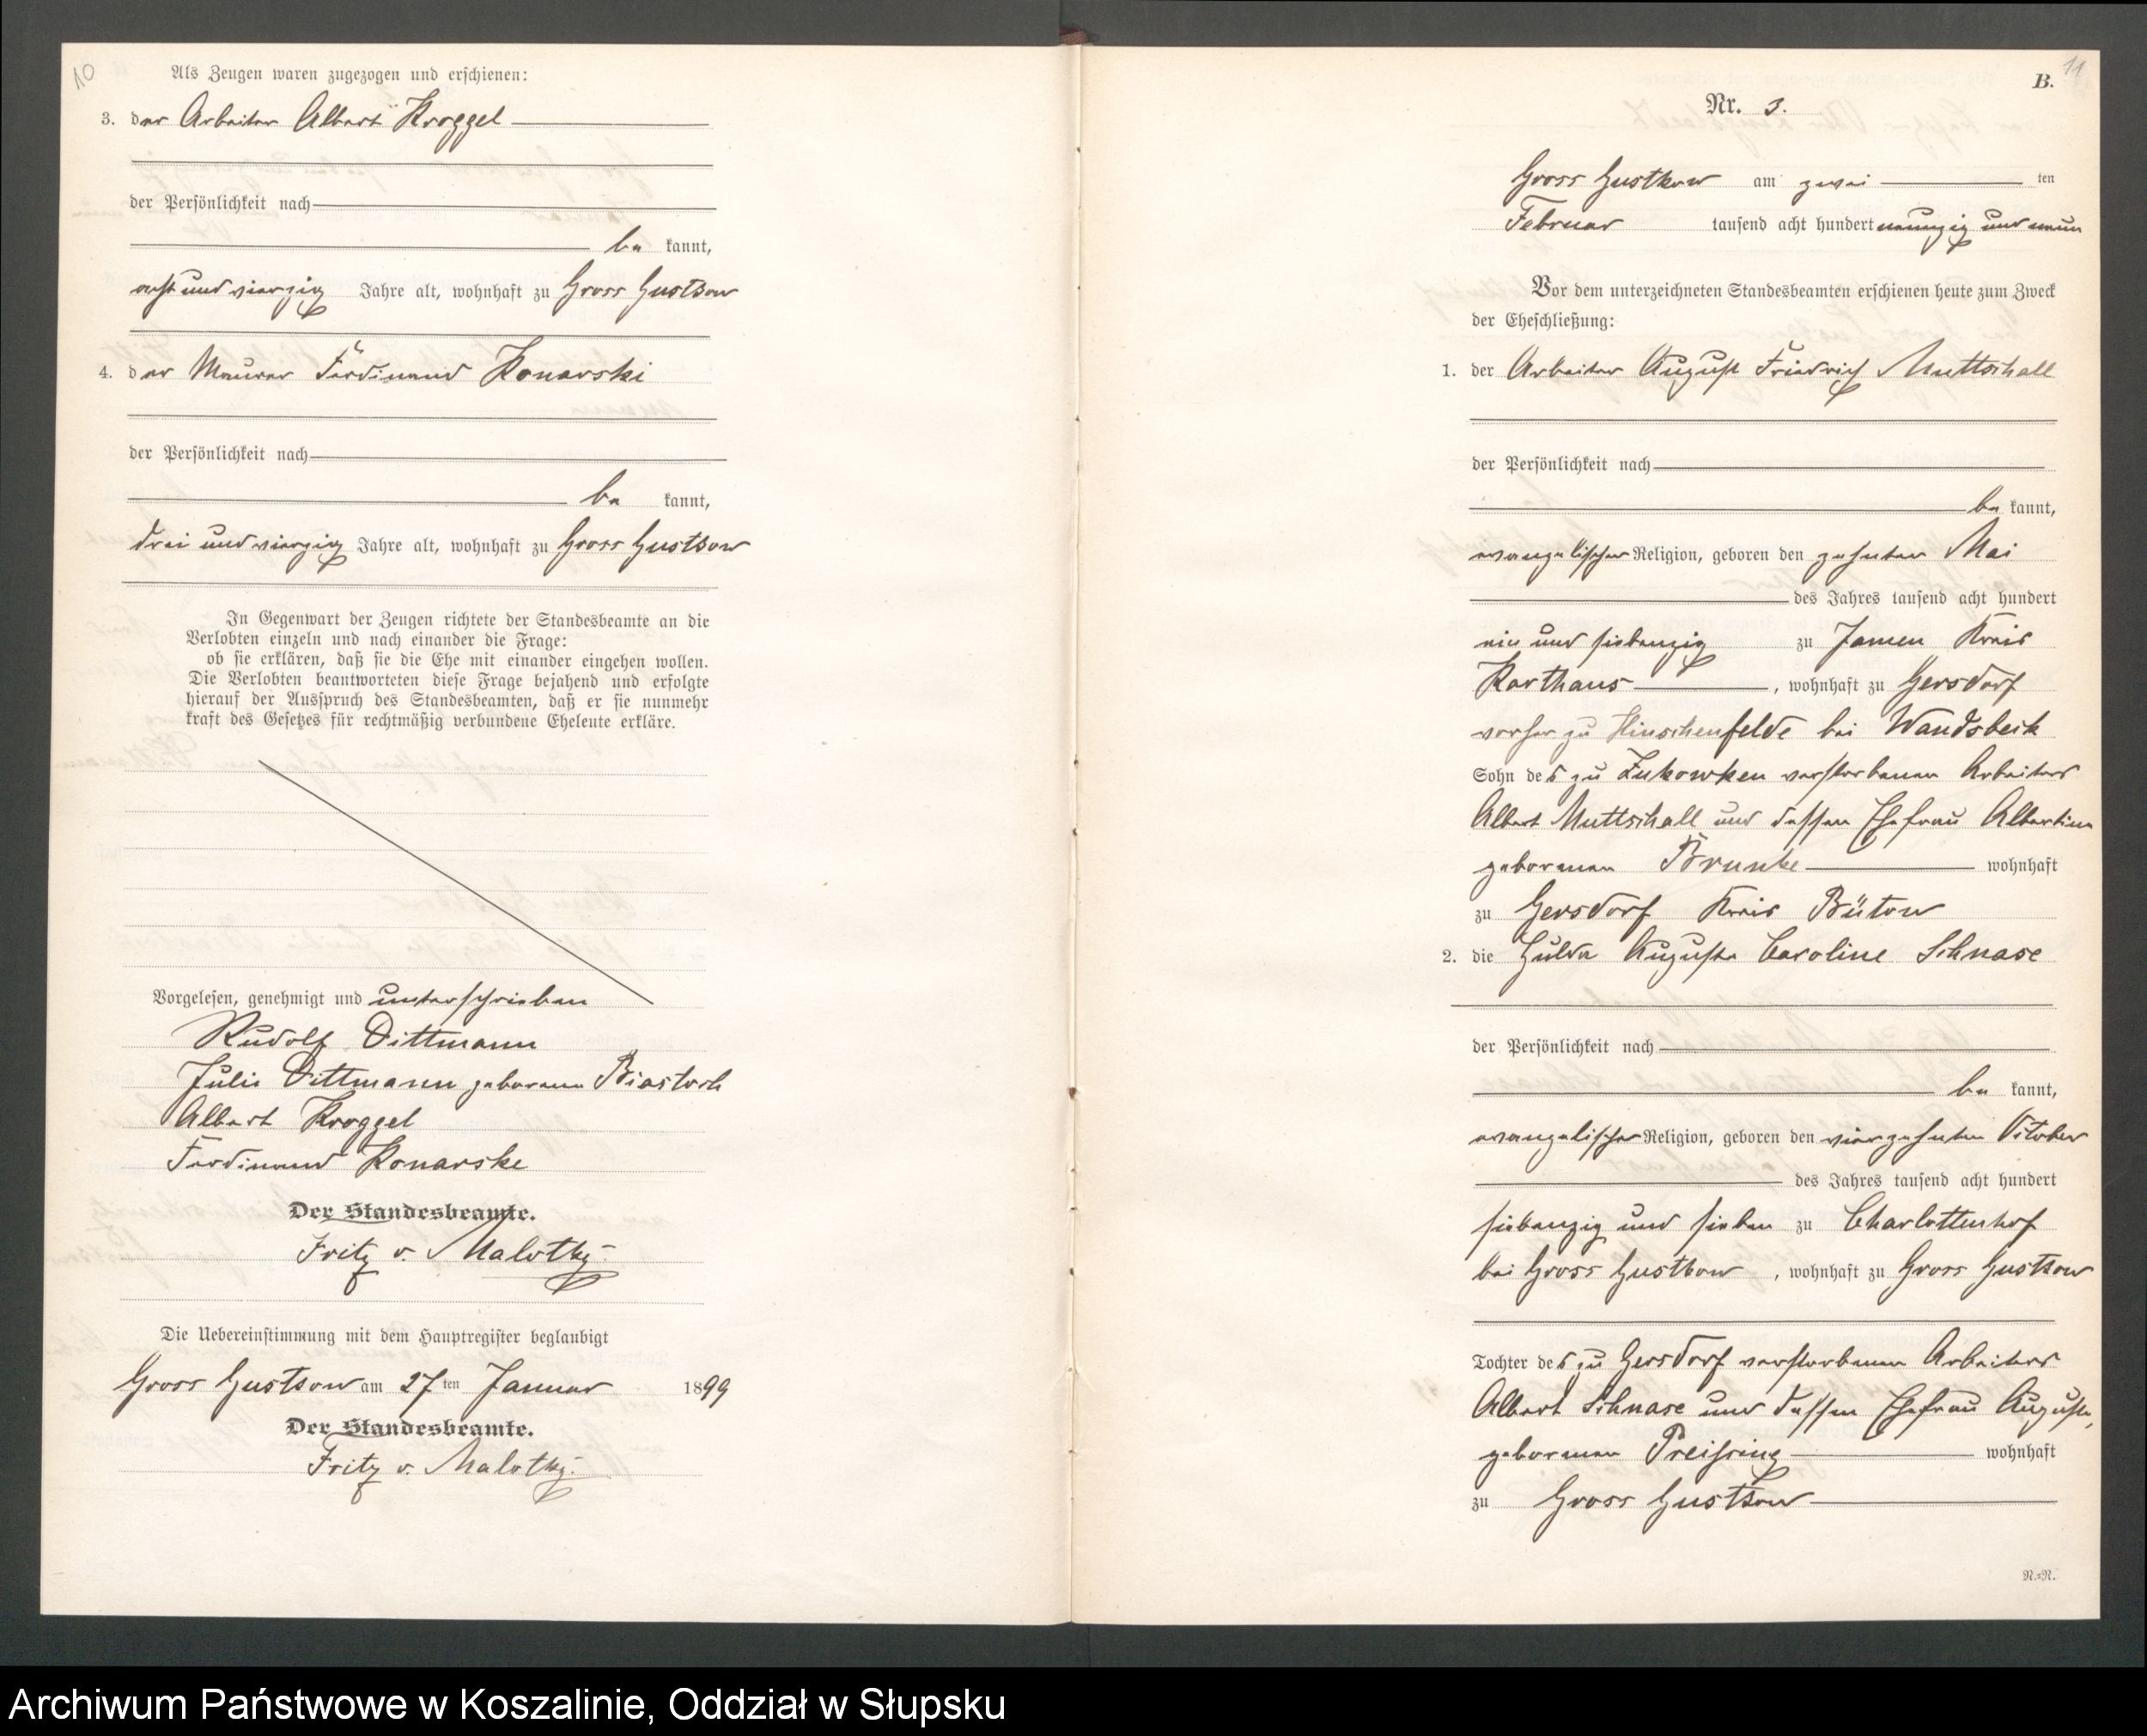 10
Als Zeugen waren zugezogen und erschienen:
3. der Arbeiter Albert Kroggel
der Persönlichkeit nach
be kannt,
acht und vierzig Jahre alt, wohnhaft zu Gross Gustkow
4. der Maurer Ferdinand Konarski
der Persönlichkeit nach
be kannt,
drei und vierzig Jahre alt, wohnhaft zu Gross Gustkow
In Gegenwart der Zeugen richtete der Standesbeamte an die
Verlobten einzeln und nach einander die Frage:
ob sie erklären, daß sie die Ehe mit einander eingehen wollen.
Die Verlobten beantworteten diese Frage bejahend und erfolgte
hierauf der Ausspruch des Standesbeamten, daß er sie nunmehr
kraft des Gesetzes für rechtmäßig verbundene Eheleute erkläre.
Vorgelesen, genehmigt und unterschrieben
Rudolf Dittmann
Julie Dittmann geborene Biastoch
Albert Kroggel
Ferdinand Konarske
Der Standesbeamte.
Fritz v. Malotky.
Die Uebereinstimmung mit dem Hauptregister beglaubigt
Gross Gustkow am 27 ten Januar 1899
Der Standesbeamte.
Fritz v. Malotky.
11
B.
Nr. 3.
Gross Gustkow am zwei ten
Februar tausend acht hundert neunzig und neun
Vor dem unterzeichneten Standesbeamten erschienen heute zum Zweck
der Eheschließung:
1. der Arbeiter August Friedrich Muttschall
der Persönlichkeit nach
be kannt,
evangelischer Religion, geboren den zehnten Mai
des Jahres tausend acht hundert
ein und siebenzig zu Jamen Kreis
Karthaus, wohnhaft zu Gersdorf
vorher zu Hinschenfelde bei Wandsbeck
Sohn des zu Zukowken verstorbenen Arbeiters
Albert Muttschall und dessen Ehefrau Albertine
geborenen Brunke wohnhaft
zu Gersdorf Kreis Bütow
2. die Hulda Auguste Caroline Schnase
der Persönlichkeit nach
be kannt,
evangelischer Religion, geboren den vierzehnten October
des Jahres tausend acht hundert
siebenzig und sieben zu Charlottenhof
bei Gross Gustkow, wohnhaft zu Gross Gustkow
Tochter des zu Gersdorf verstorbenen Arbeiters
Albert Schnase und dessen Ehefrau Auguste,
geborenen Preissing wohnhaft
zu Gross Gustkow
N.=N.
Archiwum Państwowe w Koszalinie, Oddział w Słupsku